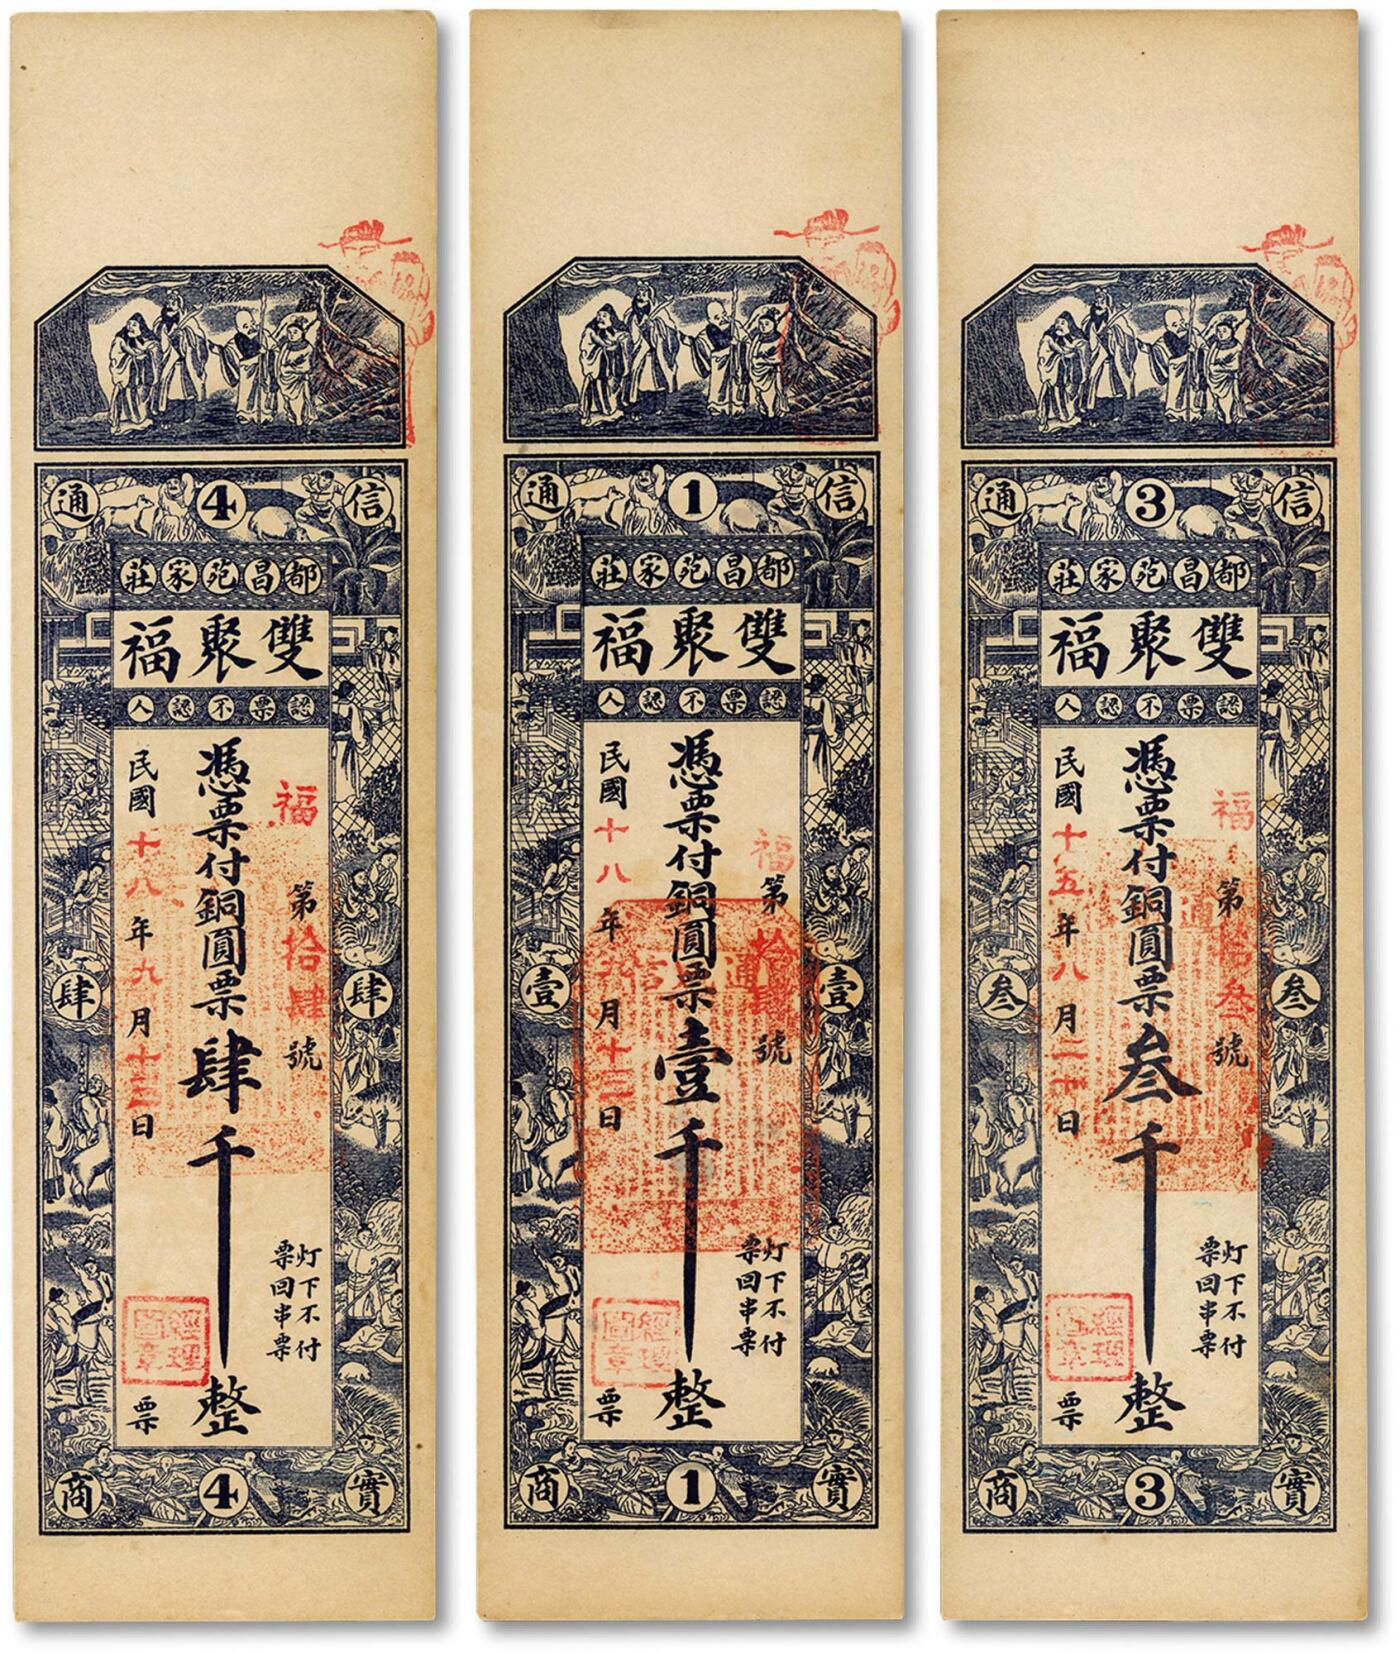 信 4 通
都昌苑家莊
雙聚福
認票不認人
福第拾肆號
灯下不付
票回串票
憑票付銅圓票肆千整
民國十八年九月十三日 票
經理圖章
肆 肆
實 4 商
信 1 通
都昌苑家莊
雙聚福
認票不認人
福第拾肆號
灯下不付
票回串票
憑票付銅圓票壹千整
民國十八年九月十三日 票
經理圖章
壹 壹
實 1 商
信 3 通
都昌苑家莊
雙聚福
認票不認人
福第拾叁號
灯下不付
票回串票
憑票付銅圓票叁千整
民國十五年八月二十日 票
經理圖章
叁 叁
實 3 商